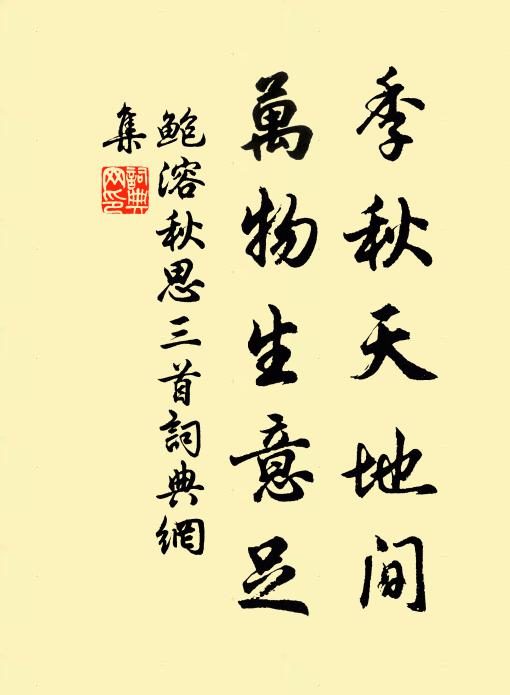 季秋天地间
萬物生意足
鲍溶秋思三首詞典網
集
詞典网印